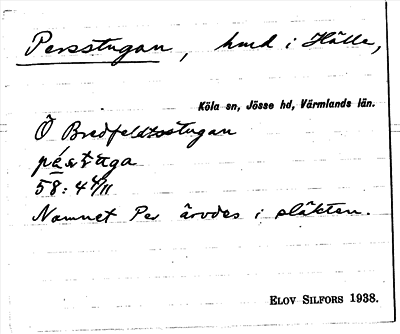 Persstugan, hmd i Hälle,
Köla sn, Jösse hd, Värmlands län.
Ö Bredfeldtsstugan
58:4
Namnet Per ärvdes i släkten.
ELOV SILFORS 1938.